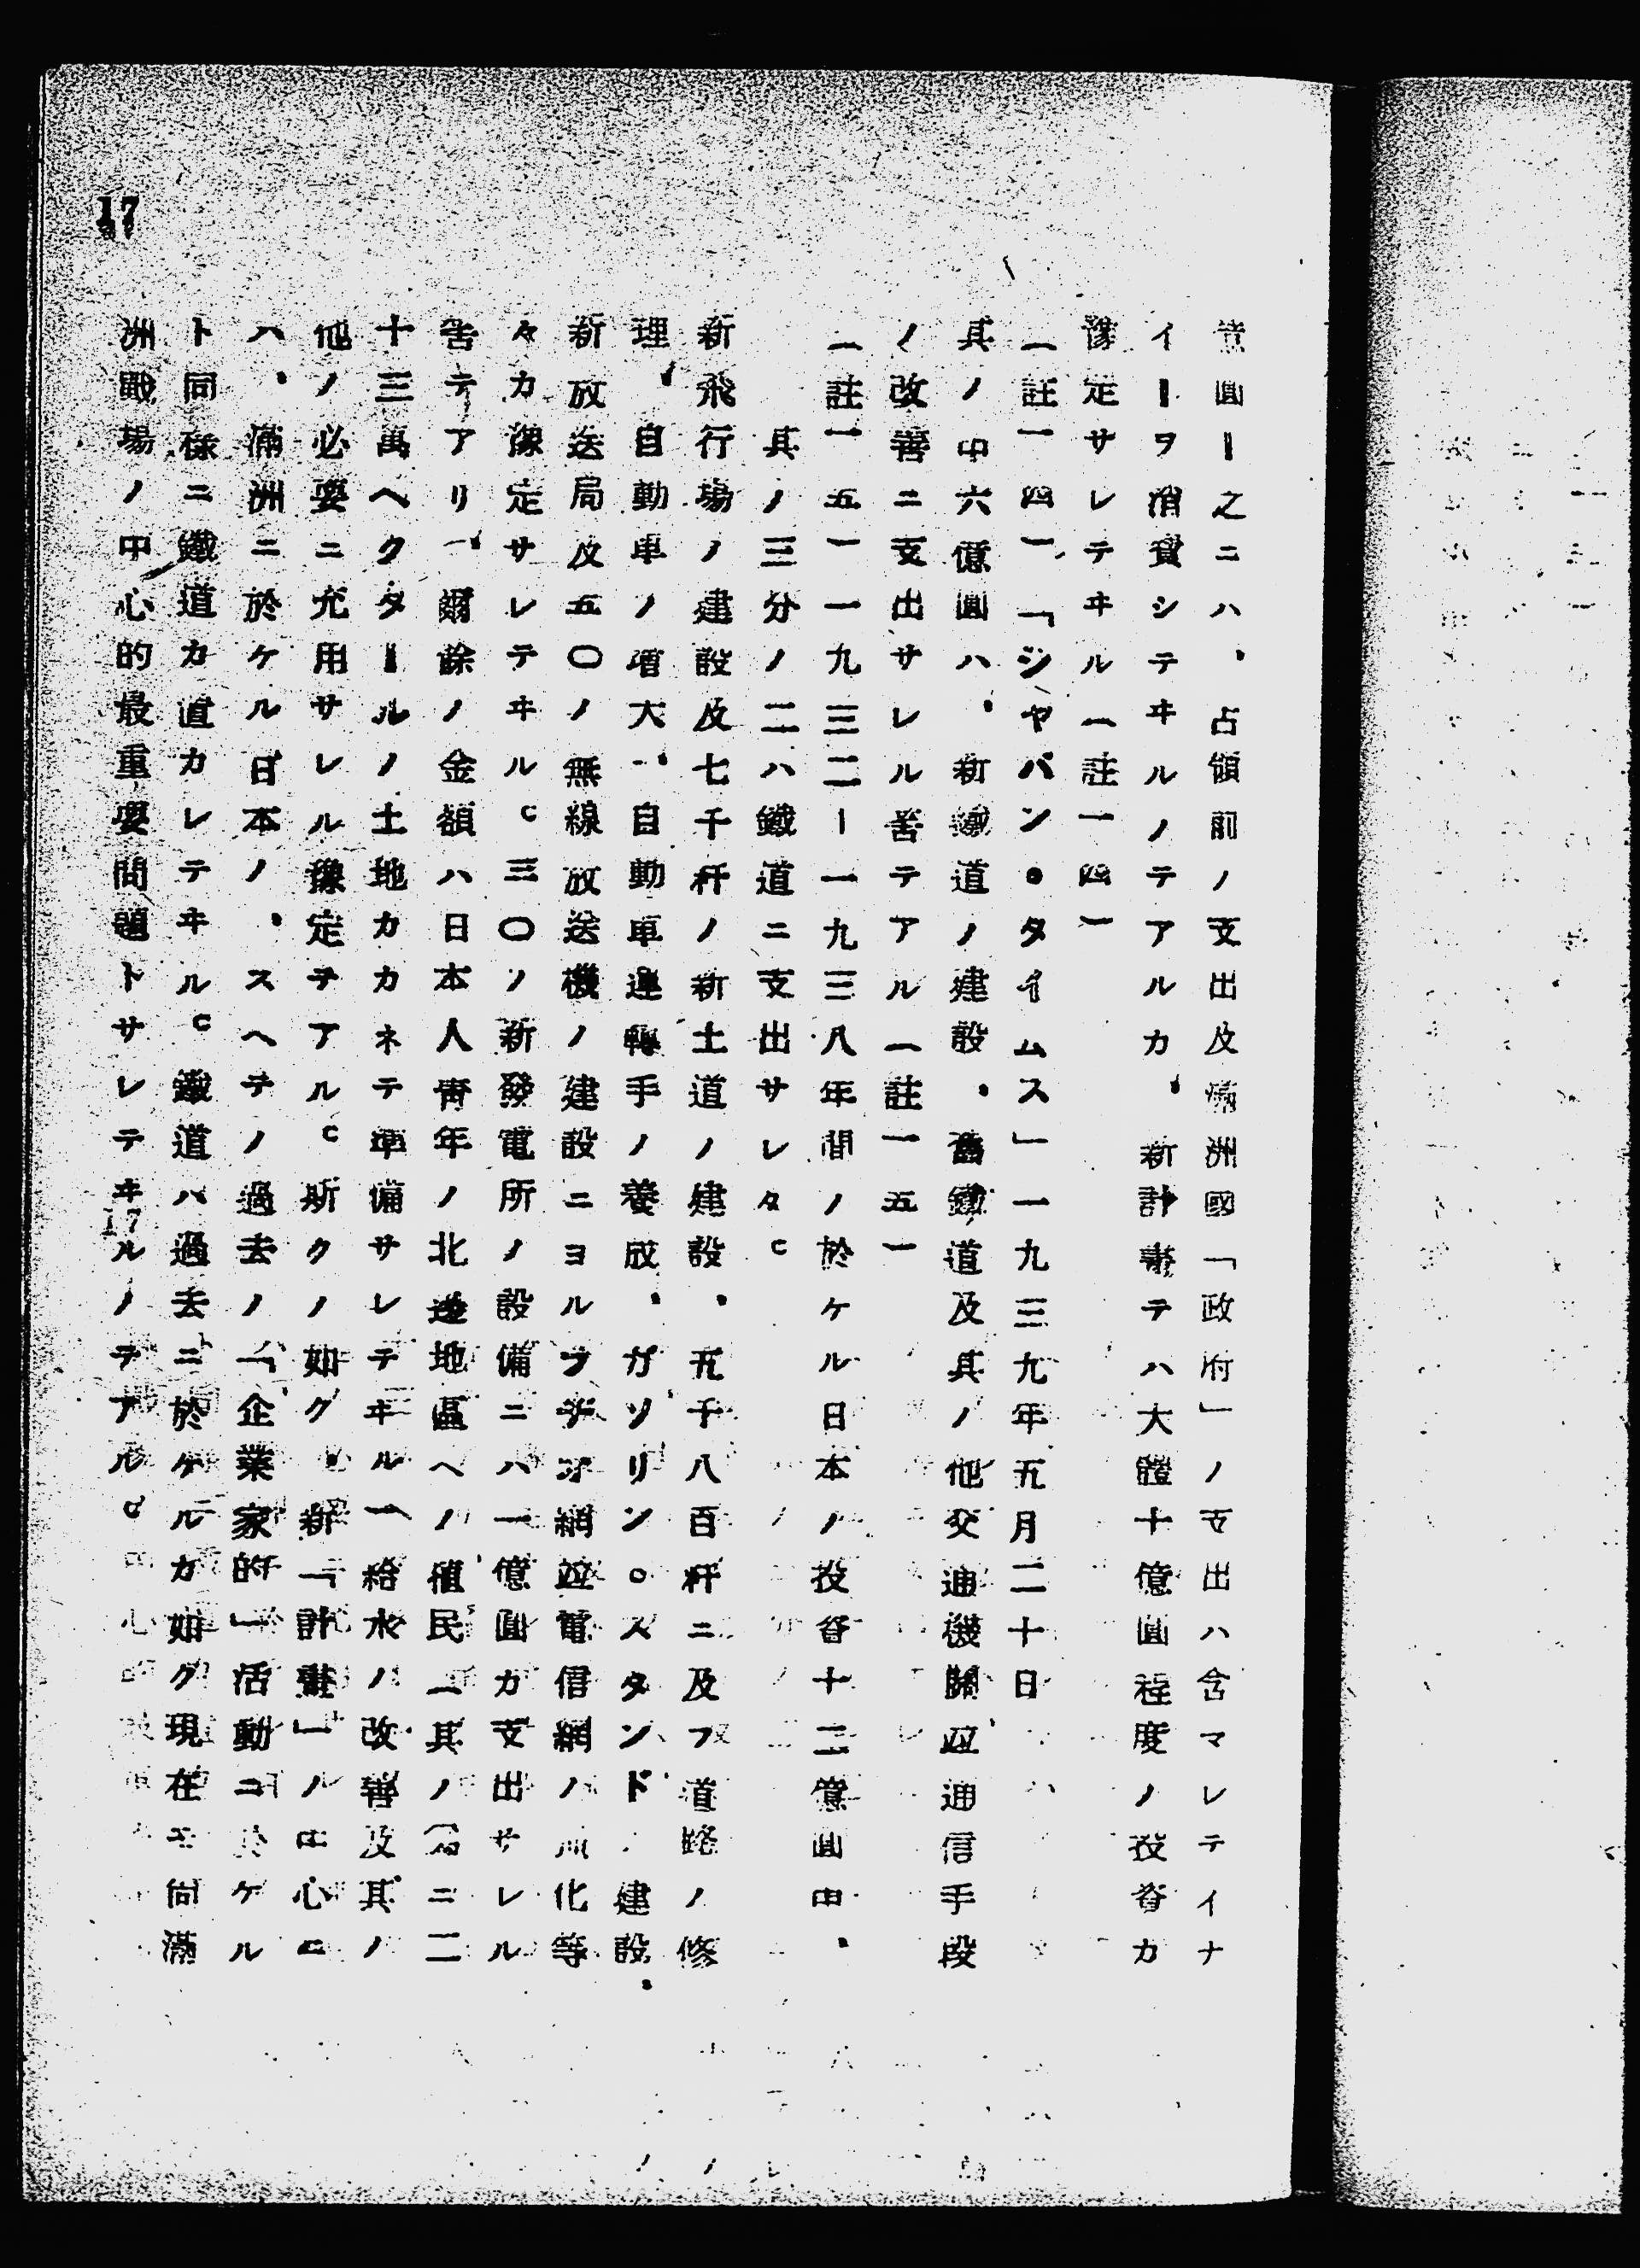 17
億圓ー之ニハ、占領前ノ支出及滿洲國「政府」ノ支出ハ含マレテイナ
イーヲ消費シテヰルノテアルカ、新計畫テハ大體十億圓程度ノ投資カ
豫定サレテヰル（註一四）
（註一四）「ジャパン・タイムス」一九三九年五月二十日
其ノ中六億圓ハ、新鐵道ノ建設、舊鐵道及其ノ他交通機關竝通信手段
ノ改善ニ支出サレル筈テアル（註一五）
（註一五）一九三二ー一九三八年間ノ於ケル日本ノ投資十二億圓中、
其ノ三分ノ二ハ鐵道ニ支出サレタ。
新飛行場ノ建設及七千粁ノ新土道ノ建設、五千八百粁ニ及フ道路ノ修
理、自動車ノ增大、自動車運轉手ノ養成、ガソリン・スタンド、建設、
新放送局及五〇ノ無線放送機ノ建設ニヨルラヂオ網竝電信網ハ化等
々カ豫定サレテヰル。三〇ノ新發電所ノ設備ニハ一億圓カ支出サレル
筈テアリ、爾餘ノ金額ハ日本人靑年ノ北邊地區ヘノ植民（其ノ爲ニ二
十三萬ヘクタールノ土地カカネテ準備サレテヰル）給水ノ改善及其ノ
他ノ必要ニ充用サレル豫定テアル。斯クノ如ク、新「計畫」ノ中心ニ
ハ、滿洲ニ於ケル日本ノ、スヘテノ過去ノ「企業家的」活動ニ於ケル
ト同樣ニ鐵道カ置カレテヰル。鐵道ハ過去ニ於ケルカ如ク現在モ尙滿
洲戰場ノ中心的最重要問題トサレテヰルノテアル。
17